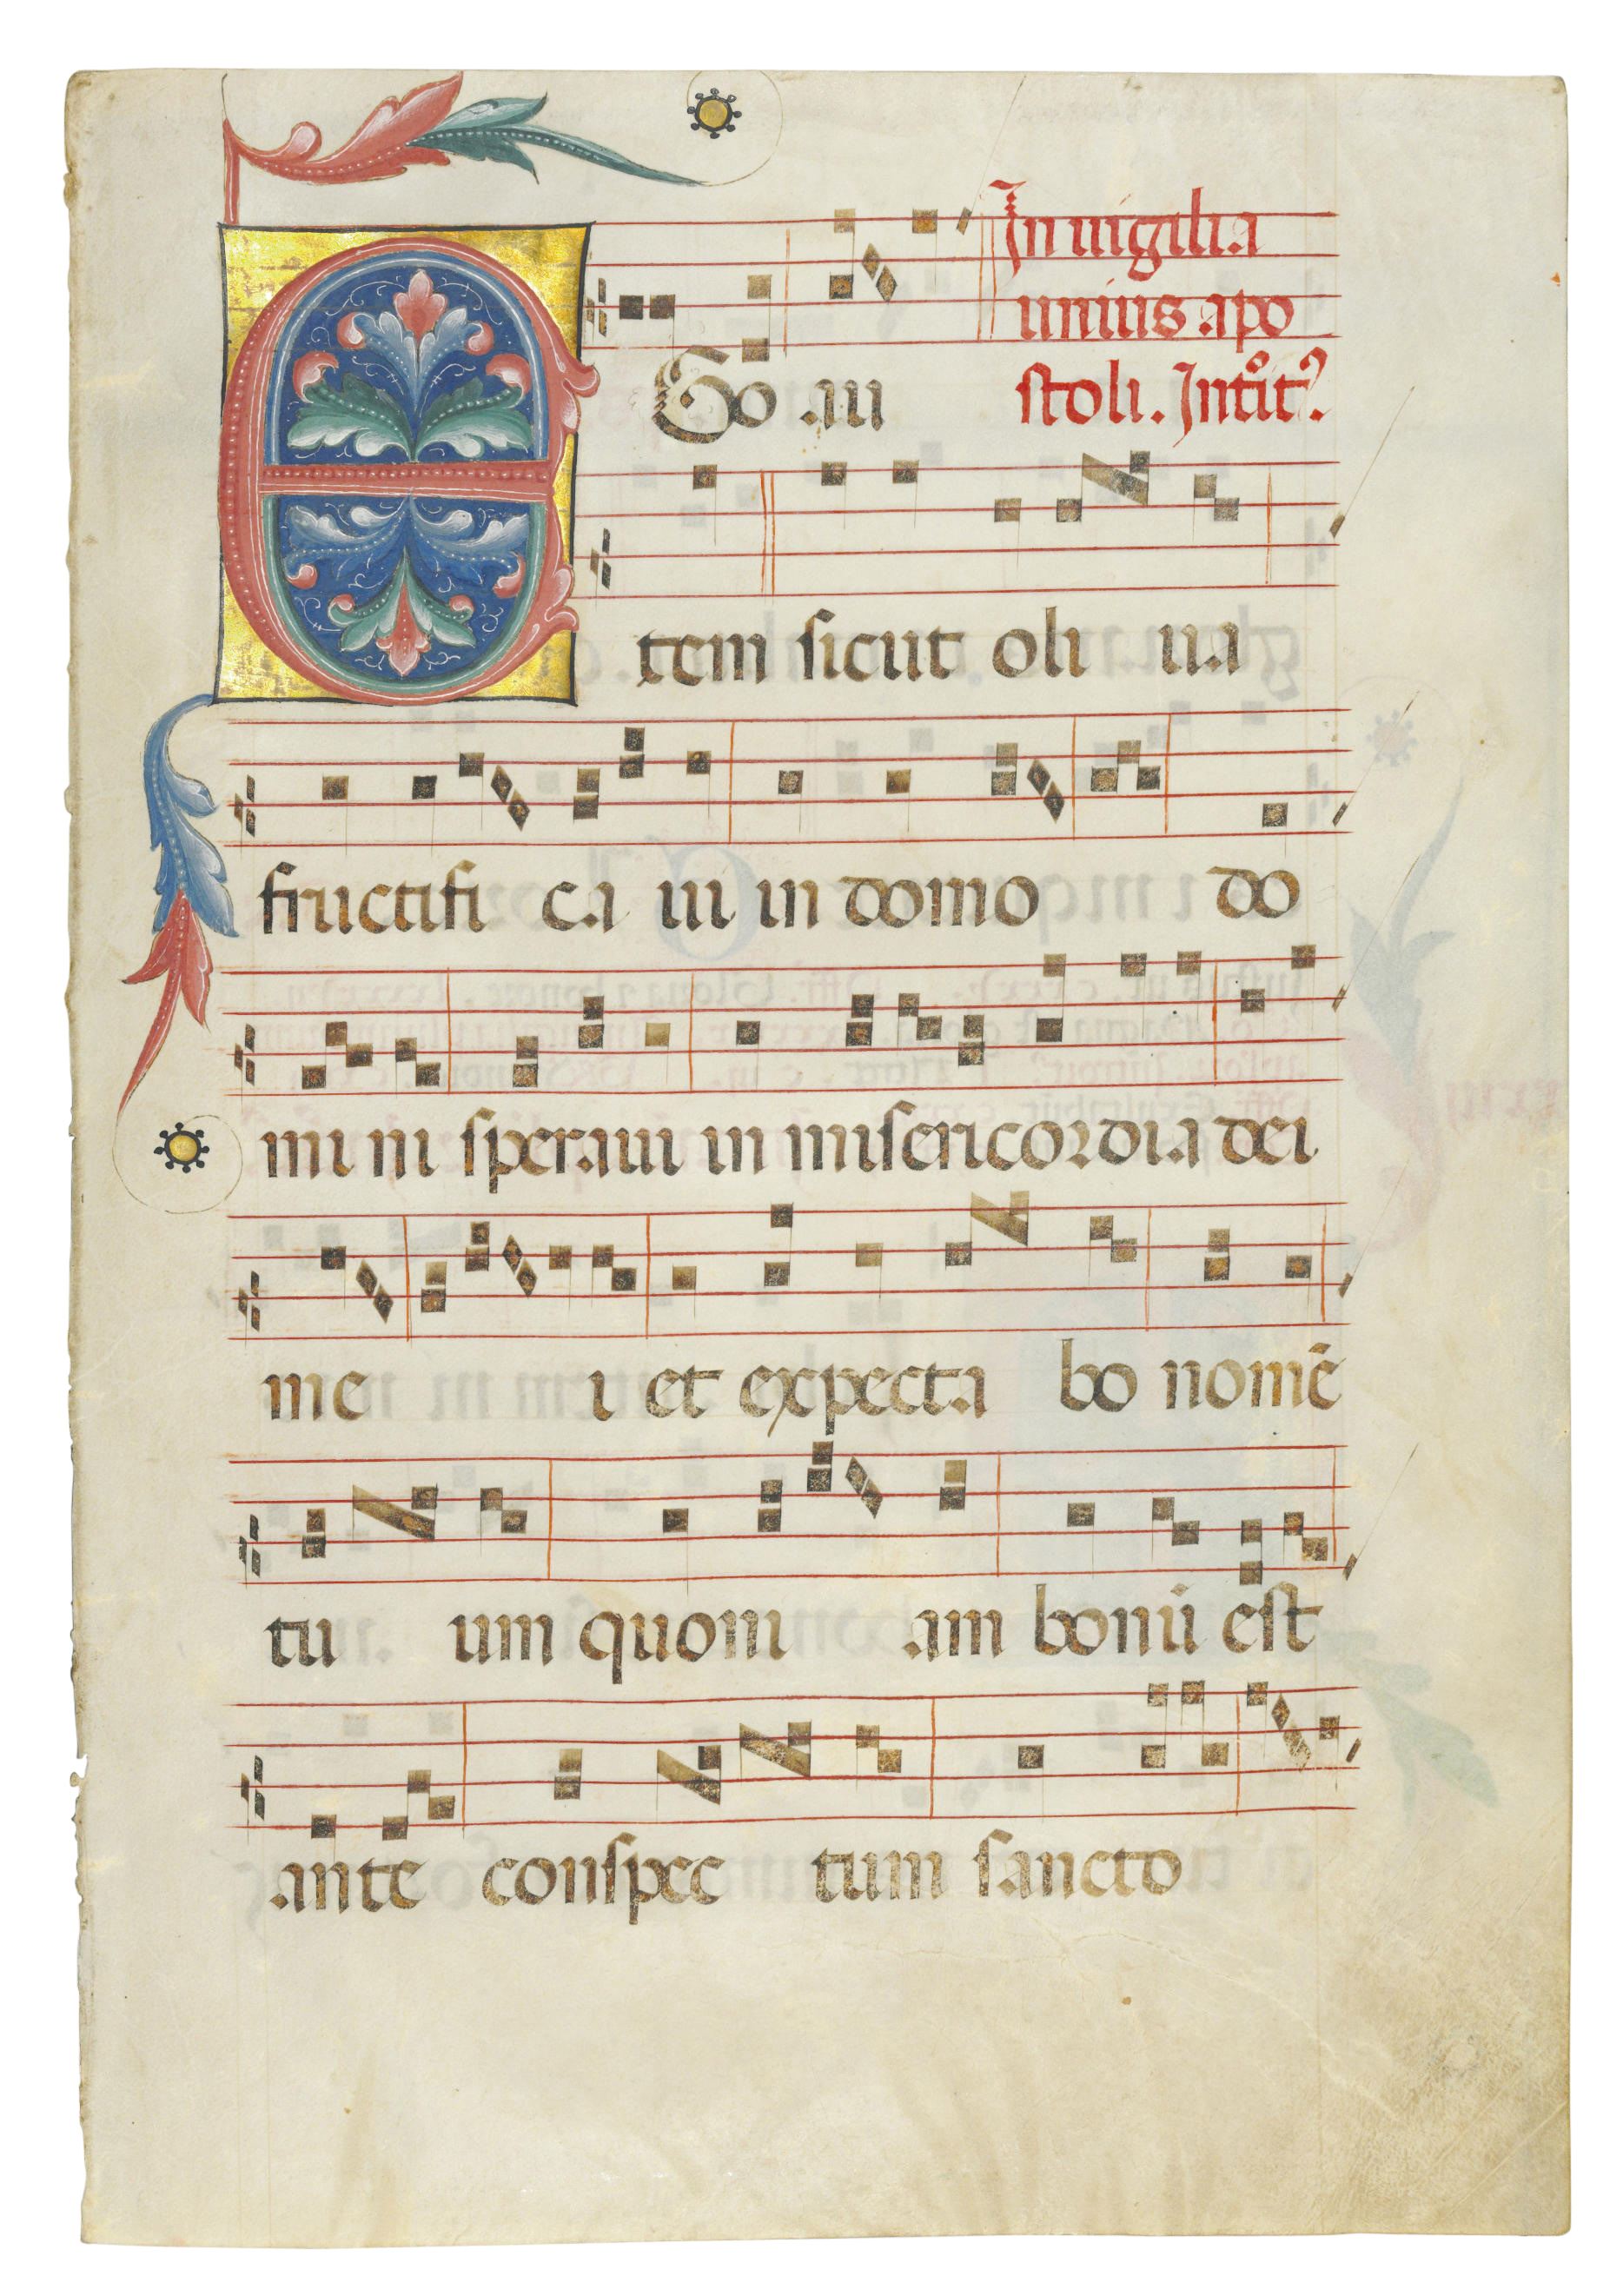 In uigilia
unius apo
stoli. Introit᷒.
EGo au
tem sicut oli ua
fructifi ca ui in domo do
mi ni speraui in misericordia dei
me i et expecta bo nomē
tu um quoni am bonū est
ante conspec tum sancto